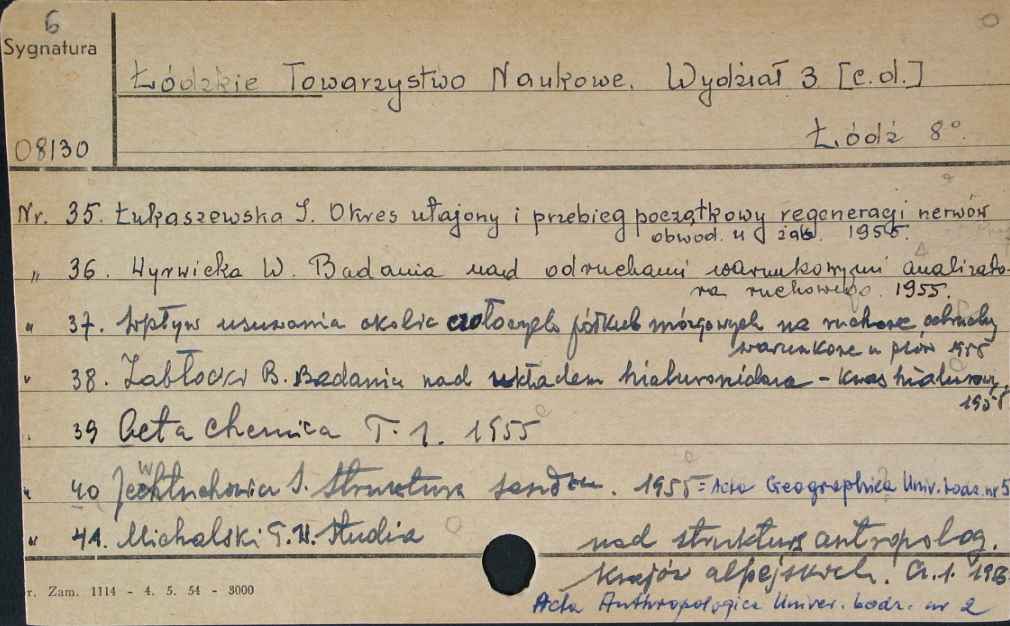 6
Sygnatura
Łódzkie Towarzystwo Naukowe. Wydział 3 [c.d.]
08130
Łódź 8°.
Nr. 35. Łukaszewska I. Okres utajony i przebieg początkowy regeneracji nerwów
obwod. u żab. 1955.
„ 36. Wyrwicka W. Badania nad odruchami warunkowymi analizato-
ra ruchowego. 1955.
„ 37. Wpływ usuwania okolic czołowych półkul mózgowych na ruchowe odruchy
warunkowe u psów 1955
" 38. Zabłocki B. Badania nad układem hialuronidaza – kwas hialuron.
1955
39 Acta chemica T. 1. 1955
" 40 S. Struktura 1955 = Acta Geographica Univ. Lodz. nr 5
" 41. Michalski T. H. Studia nad struktura antropolog.
krajów alpejskich. Cz. 1. 1956
Acta Anthropologica Univer. Lodz. nr 2
r. Zam. 1114 - 4. 5. 54 - 3000